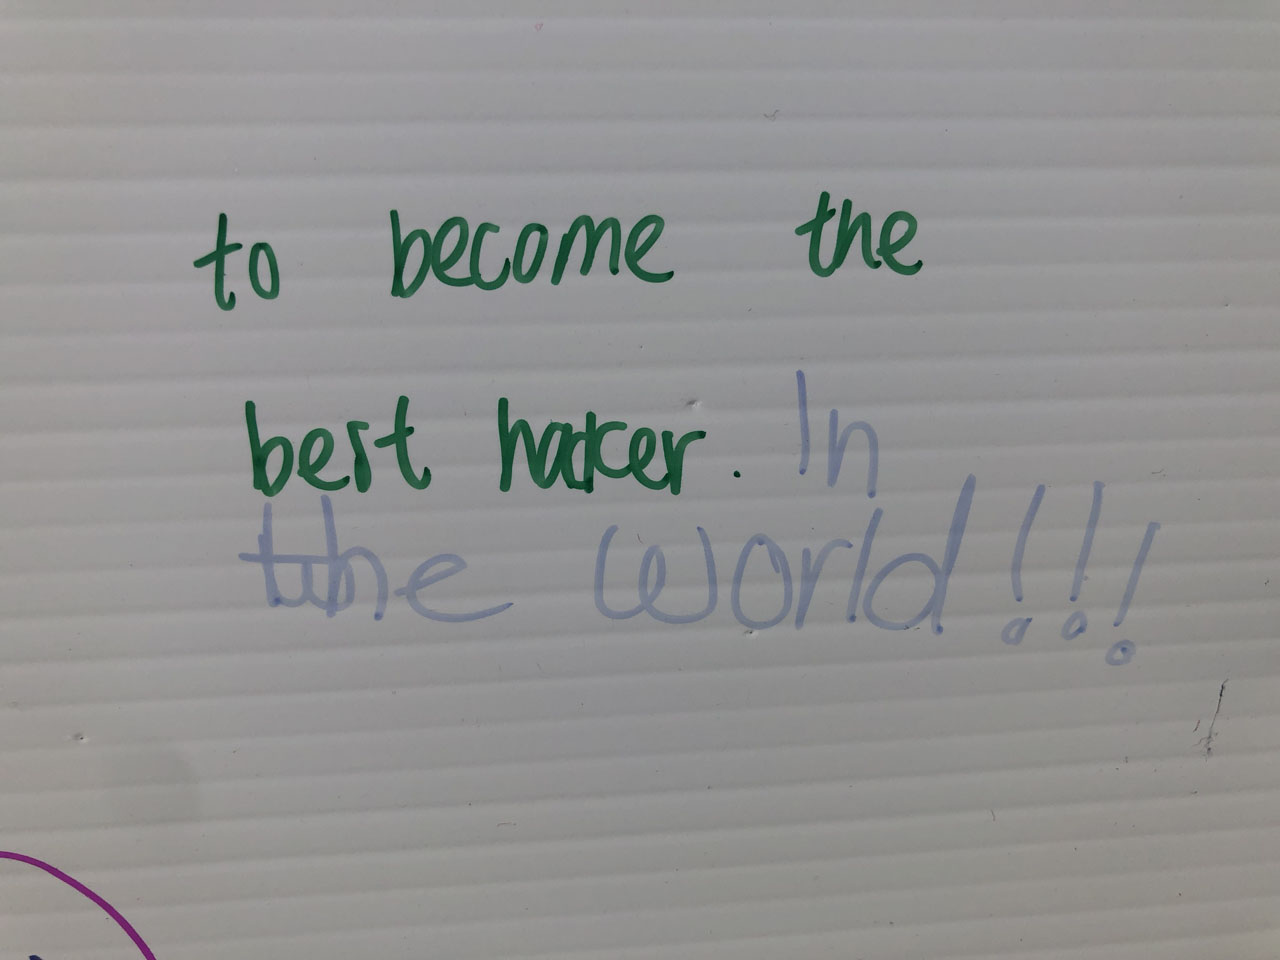 to become the
best hacker. In
the world!!!